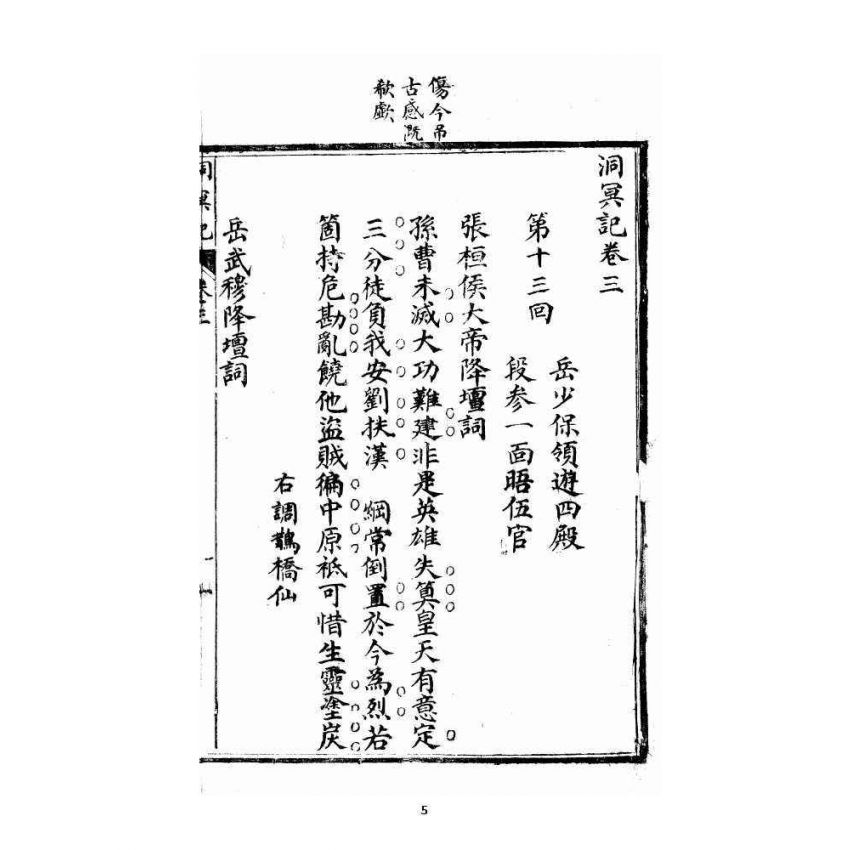 傷今吊
古感慨
欷歔
洞冥記卷三
第十三回
岳少保領遊四殿
段参一面晤伍官
張桓侯大帝降壇詞
孫曹未滅大功難建非是英雄失筭皇天有意定
三分徒負我安劉扶漢　綱常倒置於今為烈若
箇持危勘亂饒他盜賊徧中原祗可惜生靈塗炭
右調鵲橋仙
岳武穆降壇詞
洞冥記
卷三
5